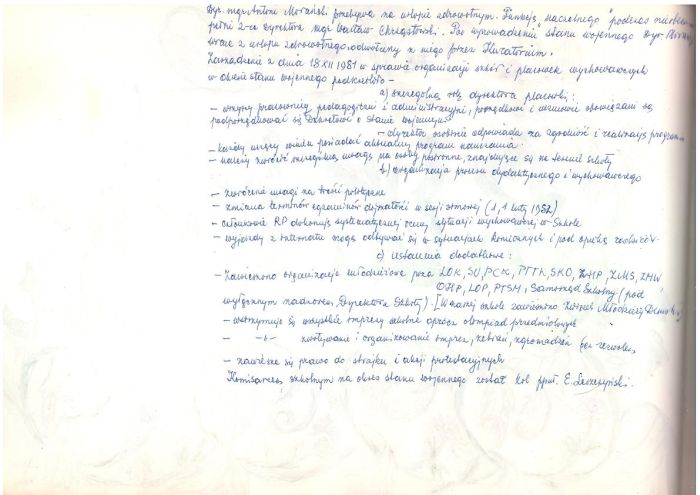 Dyr. mgr Antoni Morański przebywa na urlopie zdrowotnym. Funkcję "naczelnego" podczas nieobecn.
pełni z-ca Dyrektora mgr Wacław . Po wprowadzeniu stanu wojennego Dyr. 
wraca z urlopu zdrowotnego, odwołany z niego przez Kuratorium.
Zarządzenie z dnia 18 XII 1981 w sprawie organizacji szkół i placówek wychowawczych
w okresie stanu wojennego podkreślało -
a) szczególną rolę dyrektora placówki:
- wszyscy pracownicy pedagogiczni i administracyjni, porządkowi i uczniowie obowiązani są
podporządkować się Dekretowi o stanie wojennym
- dyrektor osobiście odpowiada za zgodność i realizację programu
- każdy uczący winien posiadać aktualny program nauczania
- należy zwrócić szczególną uwagę na osoby postronne, znajdujące się na terenie szkoły
b) organizacja procesu dydaktycznego i wychowawczego
- zwrócenie uwagi na treści polityczne
- zmiana terminów egzaminów dojrzałości w sesji zimowej (1, luty 1982)
- członkowie RP dokonują systematycznej oceny sytuacji wychowawczej w Szkole
- wyjazdy z internatu mogą odbywać się w sytuacjach koniecznych i pod opieką rodziców.
c) ustalenia dodatkowe:
- Zawieszono organizacje młodzieżowe poza LOK, SU, PCK, PTTK, SKO, ZHP, ZMS, ZMW
OHP, LOP, PTSM, Samorząd Szkolny (pod
wyłącznym nadzorem Dyrektora Szkoły). [W naszej szkole zawieszono Związek Młodzieży Demokr.]
- wstrzymuje się wszystkie imprezy szkolne oprócz olimpiad przedmiotowych
- -"- zwoływanie i organizowanie imprez, zebrań, zgromadzeń bez zezwoleń,
- zawiesza się prawo do strajku i akcji protestacyjnych
Komisarzem szkolnym na okres stanu wojennego został kol. ppłk. E.